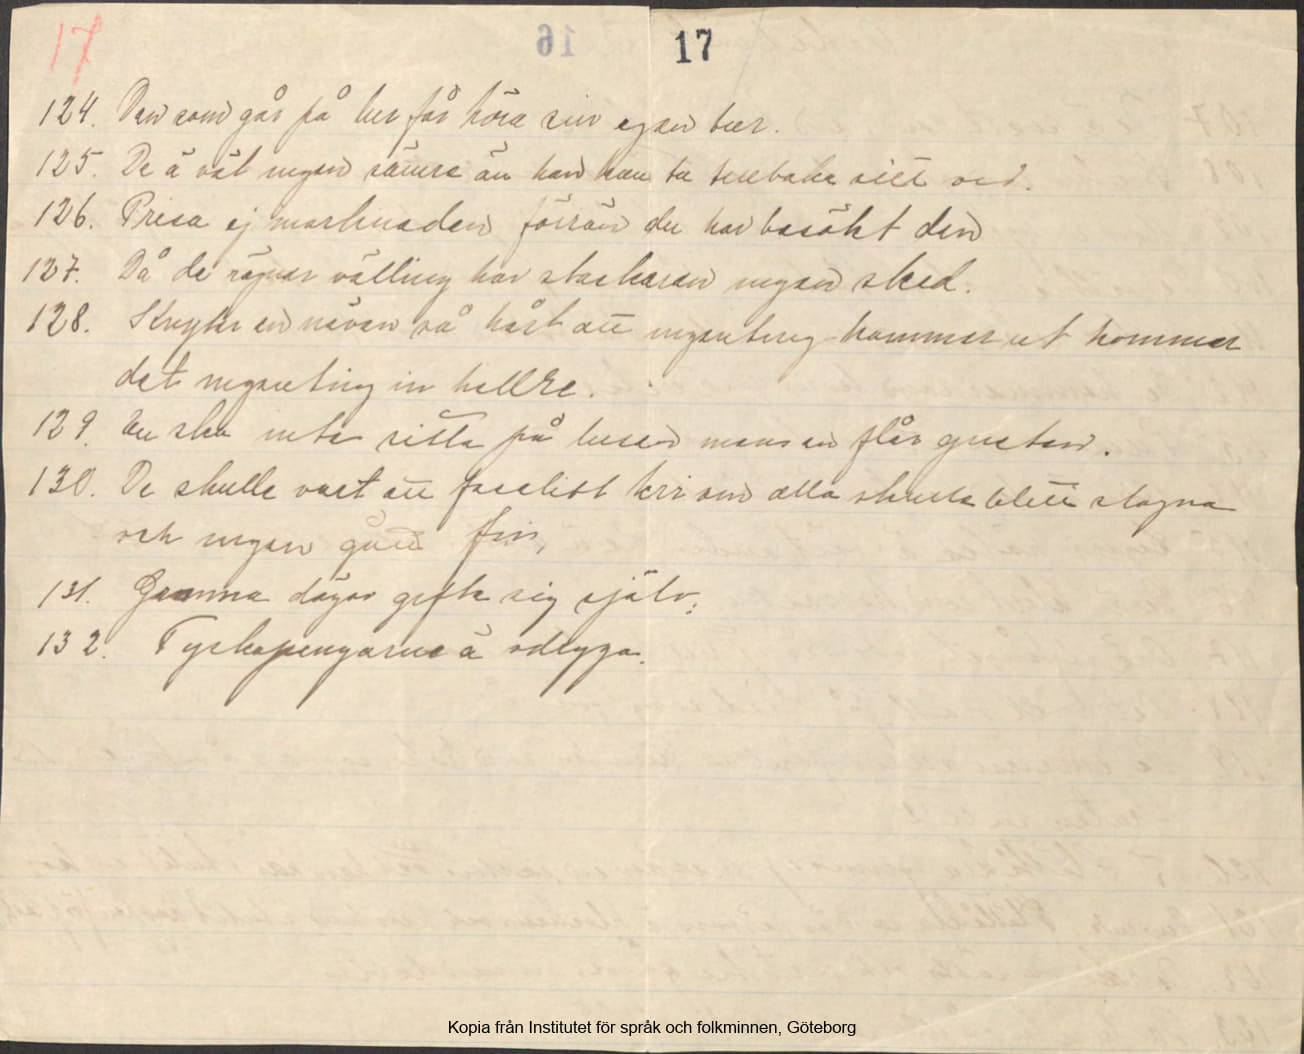 17
17
124. Den som går på lur får höra sin egen tur.
125. De ä väl ingen sämre än han kan ta tillbaka sitt ord.
126. Prisa ej marknaden förrän du har besökt den
127. Då de regnar välling har stackaren ingen sked.
128. Knyter en näven så hårt att ingenting kommer ut kommer
det ingenting in hellre.
129. En ska inte sitta på husen mens en flår
130. De skulle vart ett krig om alla skulle blitt slagna
och ingen gått fri,
131. Gamma dögar gifte sig själv.
132. Tyskapengarne ä odryga.
Kopia från Institutet för språk och folkminnen, Göteborg